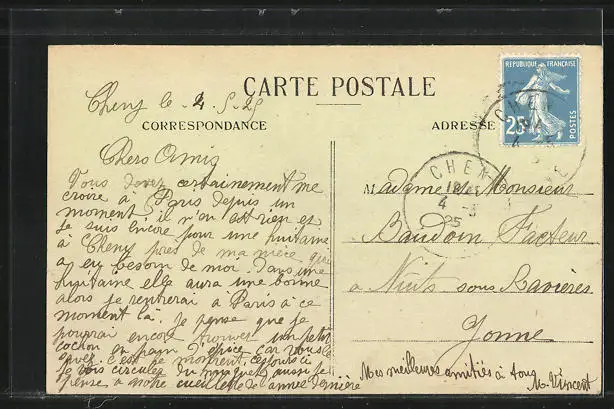 CARTE POSTALE
CORRESPONDANCE
ADRESSE
REPUBLIQUE FRANÇAISE
25
POSTES
CHENY
4 - 5
25
Cheny le 4.5.25
Chers Amis
Vous devez certainement me
croire à Paris depuis un
moment, il n'en est rien et
je suis encore pour une huitaine
à Cheny près de ma nièce qui
a eu besoin de moi. Dans une
huitaine elle aura une bonne
alors je rentrerai à Paris à ce
moment là. Je pense que je
pourrai encore trouver un petit
cochon en pain d'épice car vous
savez c'est le moment
je vois circuler du muguet aussi je
pense à notre cueillette de l'année dernière
Mes meilleures amitiés à tous
M. Vincent
Madame et Monsieur
Baudoin Facteur
à Nuits sous Ravières
Yonne